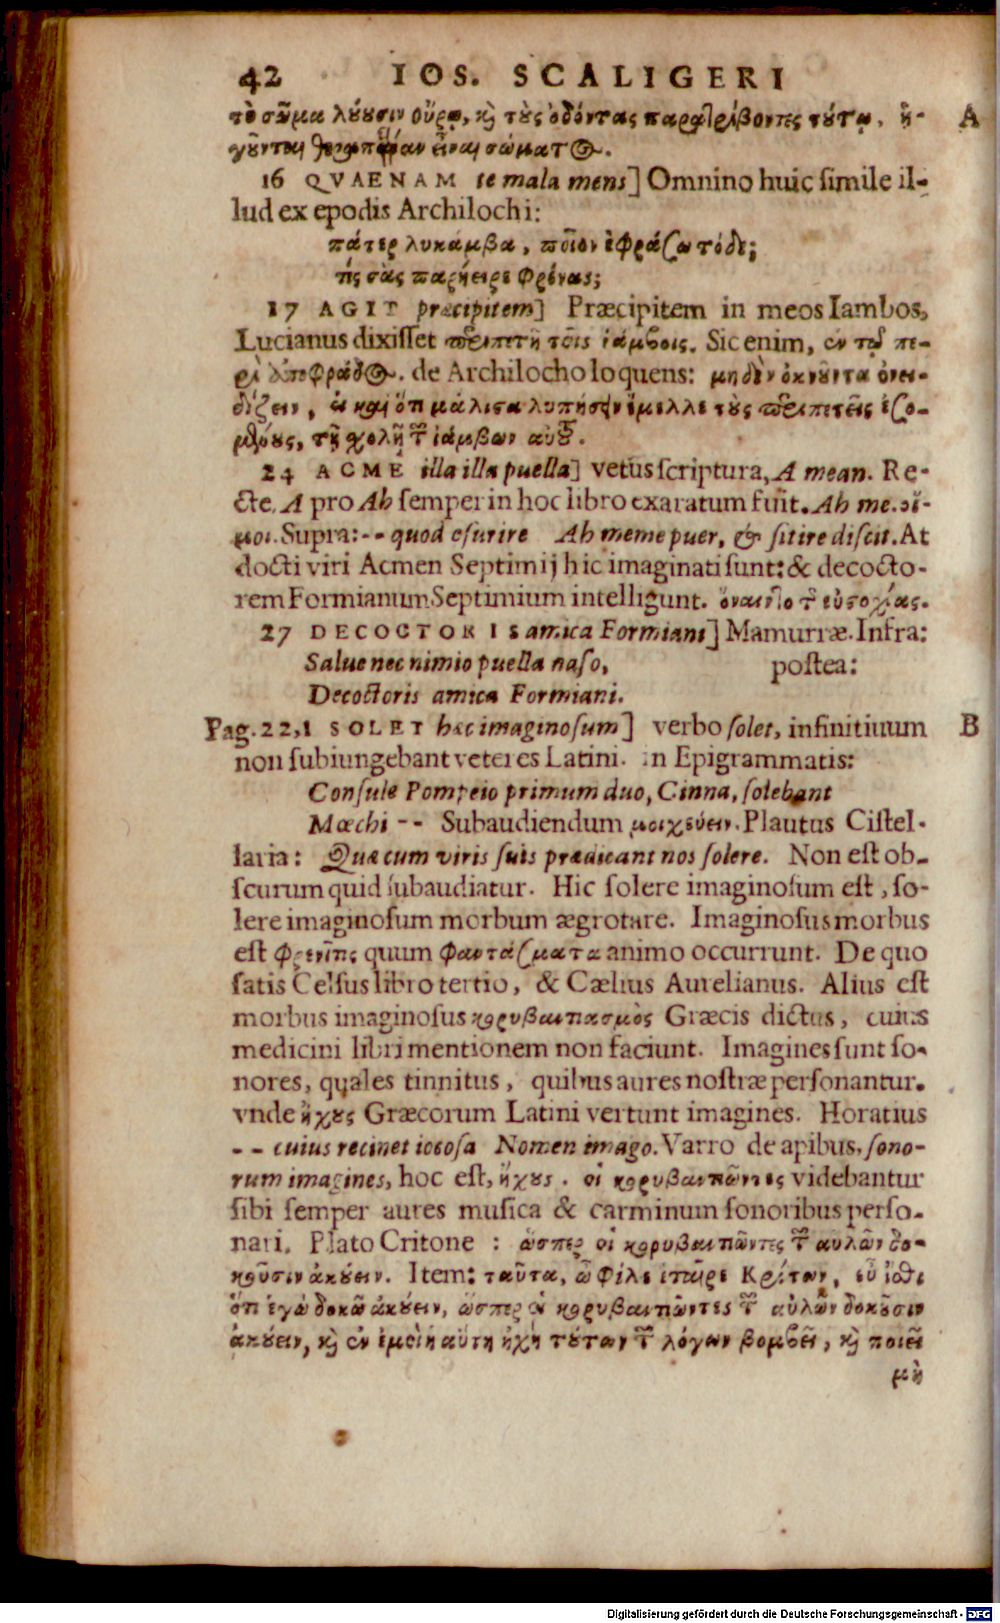 42 IOS. SCALIGERI
τὸ σῶμα λούουσιν οὔρῳ, καὶ τοὺς ὀδόντας παρατρίβοντες τούτῳ, ἡ- A
γοῦνται θεραπείαν εἶναι σώματος.
16 QVAENAM te mala mens] Omnino huic simile il-
lud ex epodis Archilochi:
πάτερ λυκάμβα, ποῖον ἐφράζω τόδε;
τίς σὰς παρήειρε φρένας;
17 AGIT præcipitem] Præcipitem in meos Iambos,
Lucianus dixisset περιπετῆ τοῖς ἰάμβοις. Sic enim, ἐν τῷ πε-
ρὶ ἀποφράδος. de Archilocho loquens: μηδὲν ὀκνοῦντα ὀνει-
δίζειν, εἰ καὶ ὅτι μάλιστα λυπήσειν ἔμελλε τοὺς περιπετεῖς ἐσο-
μένους, τῇ χολῇ τῶν ἰάμβων αὐτοῦ.
24 ACME illa illa puella] vetus scriptura, A mean. Re-
cte. A pro Ah semper in hoc libro exaratum fuit. Ah me. οἴ-
μοι. Supra: -- quod esurire Ah meme puer, & sitire discit. At
docti viri Acmen Septimij hic imaginati sunt: & decocto-
rem Formianum Septimium intelligunt. ὄναιντο τῆς εὐστοχίας.
27 DECOCTORIS amica Formiani] Mamurræ. Infra:
Salue nec nimio puella naso, postea:
Decoctoris amica Formiani.
Pag. 22,1 SOLET hæc imaginosum] verbo solet, infinitiuum B
non subiungebant veteres Latini. in Epigrammatis:
Consule Pompeio primum duo, Cinna, solebant
Mœchi -- Subaudiendum μοιχεύειν. Plautus Cistel-
laria: Quæ cum viris suis prædicant nos solere. Non est ob-
scurum quid subaudiatur. Hic solere imaginosum est, so-
lere imaginosum morbum ægrotare. Imaginosus morbus
est φρενῖτις quum φαντάσματα animo occurrunt. De quo
satis Celsus libro tertio, & Cælius Aurelianus. Alius est
morbus imaginosus κορυβαντιασμὸς Græcis dictus, cuius
medicini libri mentionem non faciunt. Imagines sunt so-
nores, quales tinnitus, quibus aures nostræ personantur.
vnde ἤχους Græcorum Latini vertunt imagines. Horatius
-- cuius recinet iocosa Nomen imago. Varro de apibus, sono-
rum imagines, hoc est, ἤχους. οἱ κορυβαντιῶντες videbantur
sibi semper aures musica & carminum sonoribus perso-
nari. Plato Critone : ὥσπερ οἱ κορυβαντιῶντες τῶν αὐλῶν δο-
κοῦσιν ἀκούειν. Item: ταῦτα, ὦ φίλε ἑταῖρε Κρίτων, εὖ ἴσθι
ὅτι ἐγὼ δοκῶ ἀκούειν, ὥσπερ οἱ κορυβαντιῶντες τῶν αὐλῶν δοκοῦσιν
ἀκούειν, καὶ ἐν ἐμοὶ ἡ αὕτη ἠχὴ τούτων τῶν λόγων βομβεῖ, καὶ ποιεῖ
μὴ
Digitalisierung gefördert durch die Deutsche Forschungsgemeinschaft - DFG